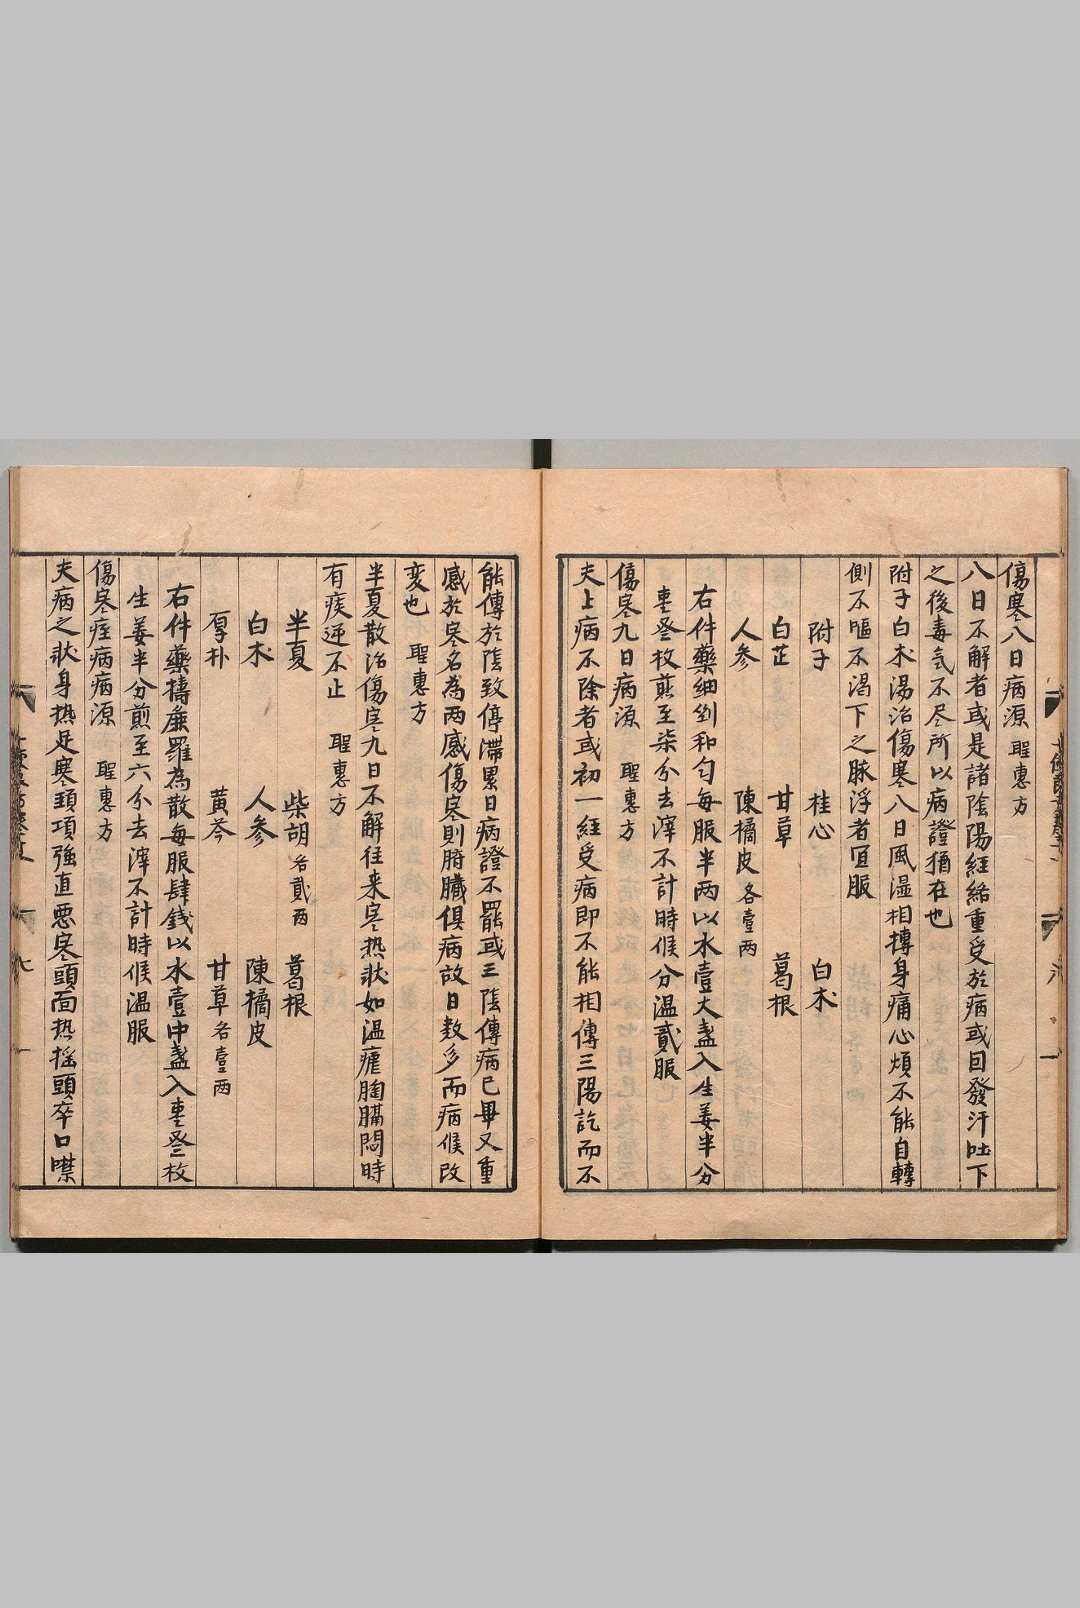 傷寒八日病源 聖惠方
八日不解者或是諸陰陽經絡重受於病或回發汗吐下
之後毒气不尽所以病證猶在也
附子白术湯治傷寒八日風湿相摶身痛心煩不能自轉
側不嘔不渇下之脉浮者宜服
附子 桂心 白术
白芷 甘草 葛根
人参 陳橘皮各壹两
右件藥細剉和匀每服半两以水壹大盞入生姜半分
枣叄枚煎至柒分去滓不計時候分温貳服
傷寒九日病源 聖惠方
夫上病不除者或初一經受病即不能相傳三陽訖而不
能傳於陰致停滯累日病證不罷或三陰傳病已畢又重
感於寒名為两感傷寒則腑臟俱病故日数多而病候改
变也 聖惠方
半夏散治傷寒九日不解往来寒热状如温瘧胸膈悶時
有痰逆不止 聖惠方
半夏 柴胡各貳两 葛根
白术 人参 陳橘皮
厚朴 黄芩 甘草各壹两
右件藥擣麁羅為散每服肆錢以水壹中盞入枣叄枚
生姜半分煎至六分去滓不計時候温服
傷寒痓病病源 聖惠方
夫病之状身热足寒頸項強直悪寒頭面热摇頭卒口噤